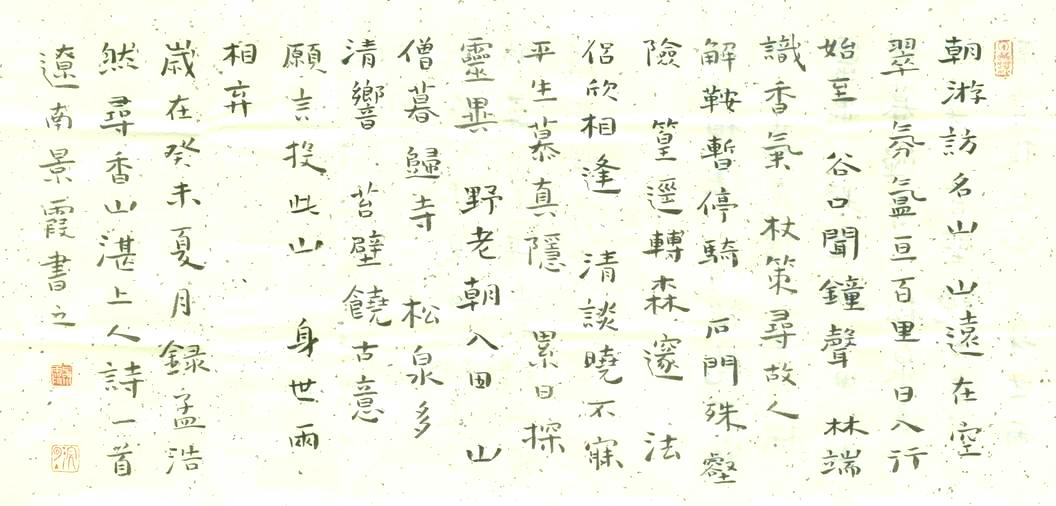 朝游訪名山山遠在空
翠氛氳亘百里日入行
始至谷口聞鐘聲林端
識香氣杖策尋故人
解鞍暫停騎石門殊壑
險篁逕轉森邃法
侶欣相逢清談曉不寐
平生慕真隱累日探
靈異野老朝入田山
僧暮歸寺松泉多
清響苔壁饒古意
願言投此山身世兩
相弃
歲在癸未夏月録孟浩
然尋香山湛上人詩一首
遼南景霞書之